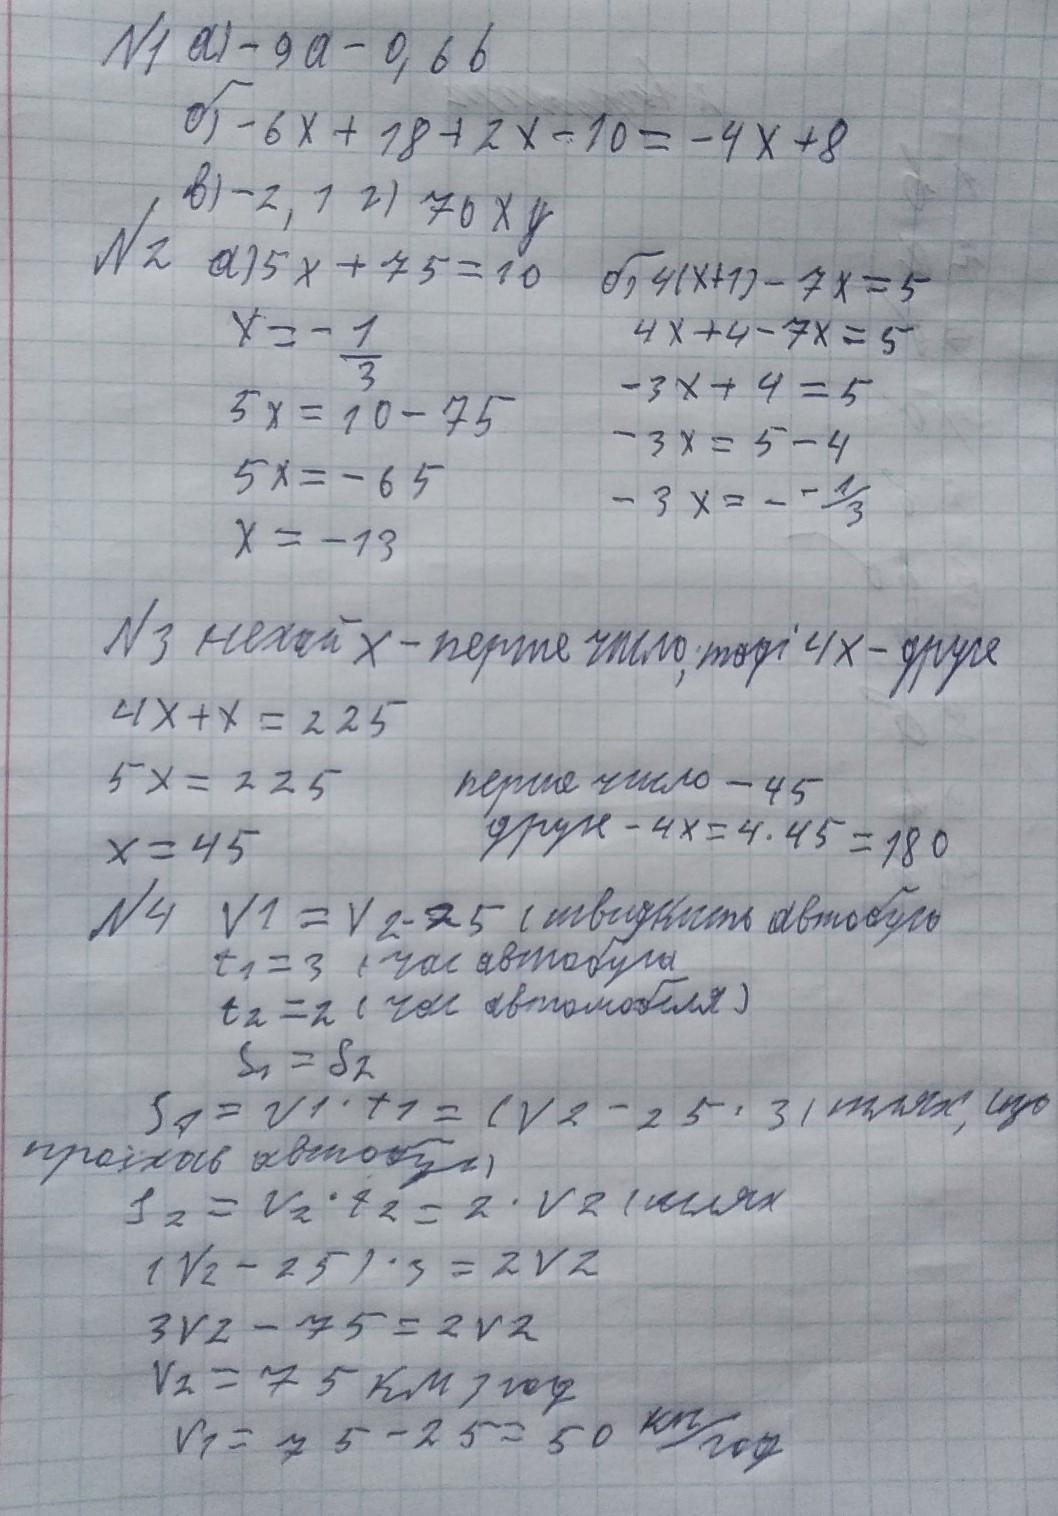 N1 а) -9a - 0,6b
б) -6x + 18 + 2x - 10 = -4x + 8
в) -2,1 г) 70xy
N2 а) 5x + 75 = 10
x = - 1/3
5x = 10 - 75
5x = -65
x = -13
б) 4(x+1) - 7x = 5
4x + 4 - 7x = 5
-3x + 4 = 5
-3x = 5 - 4
-3x = - - 1/3
N3 нехай x - перше число, тоді 4x - друге
4x + x = 225
5x = 225
x = 45
перше число - 45
друге - 4x = 4 · 45 = 180
N4 V1 = V2 - 25 (швидкість автобуса
t1 = 3 (час автобуса
t2 = 2 (час автомобіля)
S1 = S2
S1 = V1 · t1 = (V2 - 25 · 3) шлях, що
проїхав автобус)
S2 = V2 · t2 = 2 · V2 (шлях
(V2 - 25) · 3 = 2V2
3V2 - 75 = 2V2
V2 = 75 км/год
V1 = 75 - 25 = 50 км/год